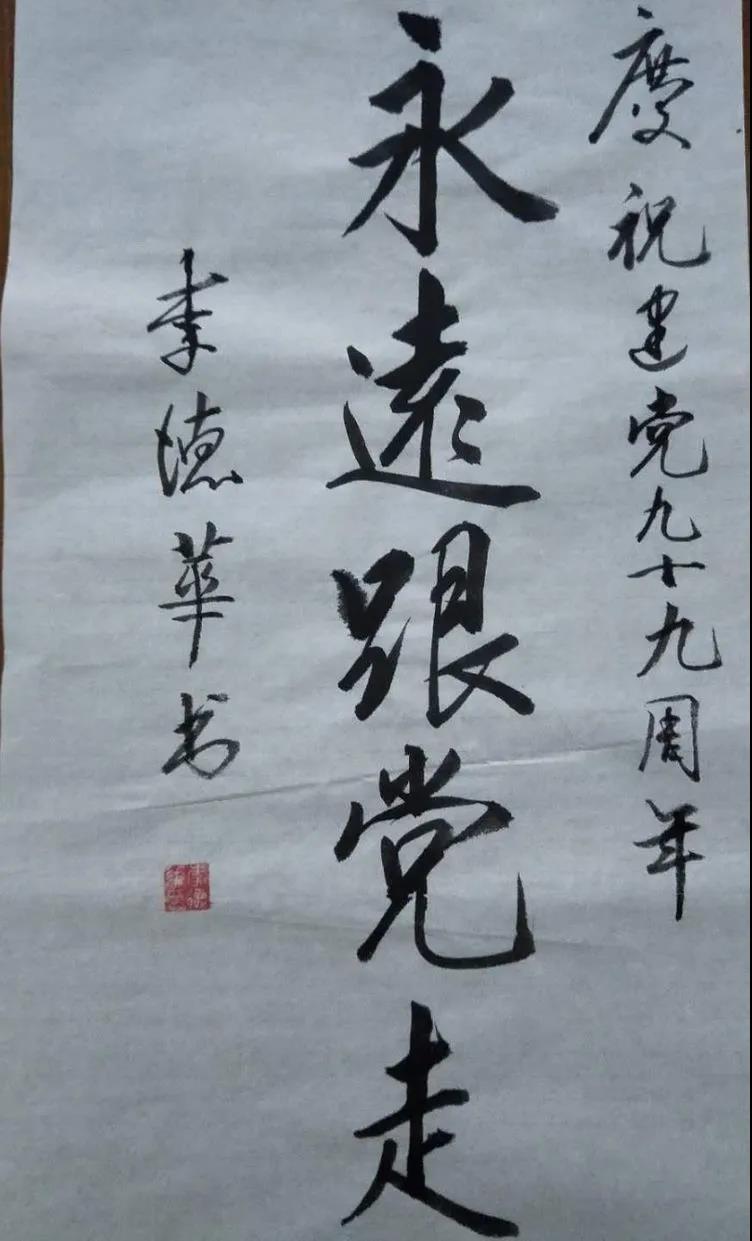 慶祝建党九十九周年
永遠跟党走
李德華书